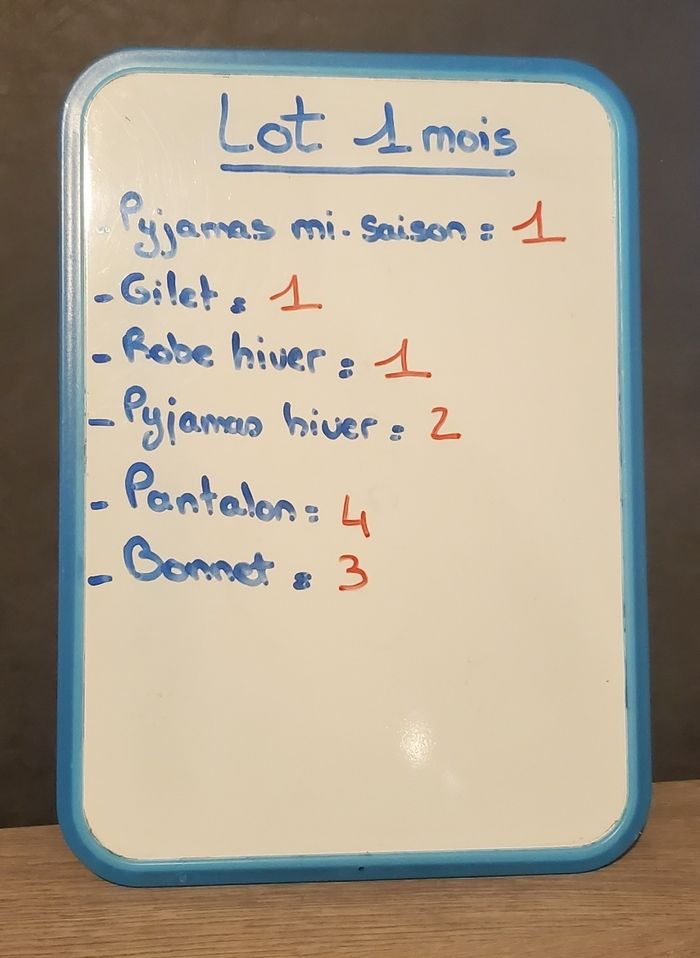 Lot 1 mois
- Pyjamas mi-saison : 1
- Gilet : 1
- Robe hiver : 1
- Pyjamas hiver : 2
- Pantalon : 4
- Bonnet : 3